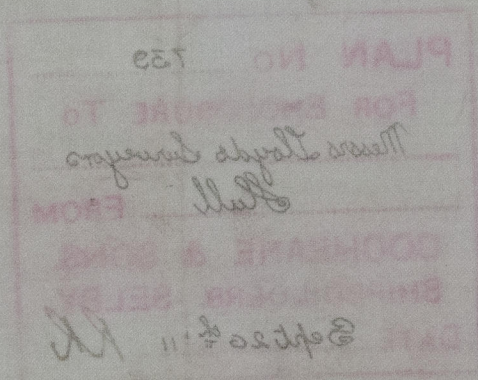 PLAN No 739
FOR ENCLOSURE To
Messrs Lloyds Surveyors
Hull FROM
COCHRANE & SONS
SHIPBUILDERS SELBY
DATE Sept 26th '11